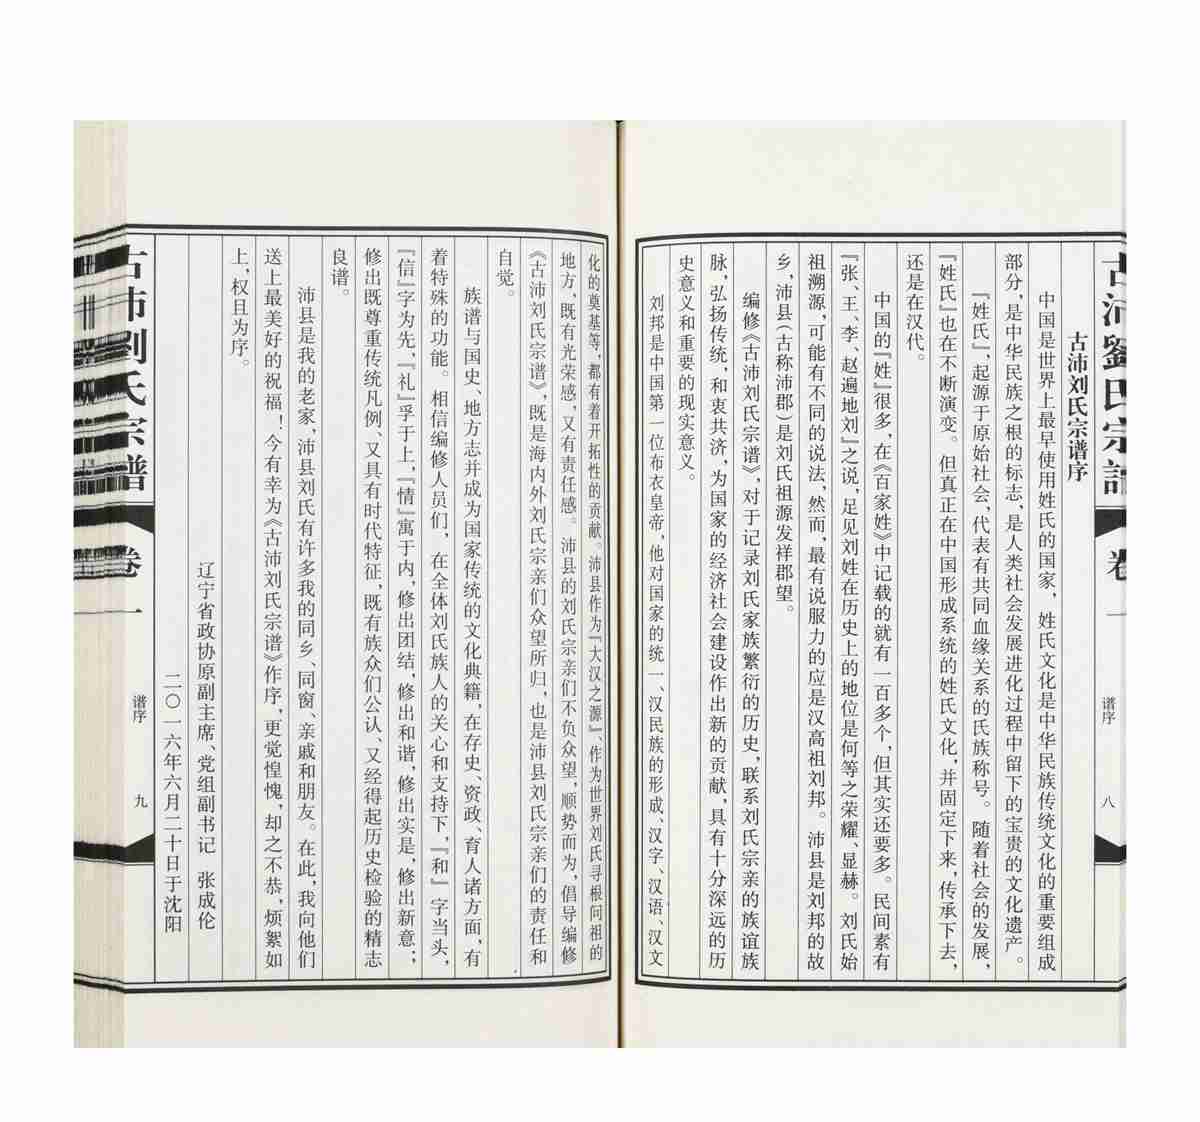 古沛劉氏宗譜
卷一
谱序
八
古沛刘氏宗谱序
中国是世界上最早使用姓氏的国家，姓氏文化是中华民族传统文化的重要组成
部分，是中华民族之根的标志，是人类社会发展进化过程中留下的宝贵的文化遗产。
『姓氏』，起源于原始社会，代表有共同血缘关系的氏族称号。随着社会的发展，
『姓氏』也在不断演变。但真正在中国形成系统的姓氏文化，并固定下来，传承下去，
还是在汉代。
中国的『姓』很多，在《百家姓》中记载的就有一百多个，但其实还要多。民间素有
『张、王、李、赵遍地刘』之说，足见刘姓在历史上的地位是何等之荣耀、显赫。刘氏始
祖溯源，可能有不同的说法，然而，最有说服力的应是汉高祖刘邦。沛县是刘邦的故
乡，沛县（古称沛郡）是刘氏祖源发祥郡望。
编修《古沛刘氏宗谱》，对于记录刘氏家族繁衍的历史，联系刘氏宗亲的族谊族
脉，弘扬传统，和衷共济，为国家的经济社会建设作出新的贡献，具有十分深远的历
史意义和重要的现实意义。
刘邦是中国第一位布衣皇帝，他对国家的统一、汉民族的形成、汉字、汉语、汉文
化的奠基等，都有着开拓性的贡献。沛县作为『大汉之源』、作为世界刘氏寻根问祖的
地方，既有光荣感，又有责任感。沛县的刘氏宗亲们不负众望，顺势而为，倡导编修
《古沛刘氏宗谱》，既是海内外刘氏宗亲们众望所归，也是沛县刘氏宗亲们的责任和
自觉。
族谱与国史、地方志并成为国家传统的文化典籍，在存史、资政、育人诸方面，有
着特殊的功能。相信编修人员们，在全体刘氏族人的关心和支持下，『和』字当头，
『信』字为先，『礼』孚于上，『情』寓于内，修出团结，修出和谐，修出实是，修出新意；
修出既尊重传统凡例、又具有时代特征，既有族众们公认、又经得起历史检验的精志
良谱。
沛县是我的老家，沛县刘氏有许多我的同乡、同窗、亲戚和朋友。在此，我向他们
送上最美好的祝福！今有幸为《古沛刘氏宗谱》作序，更觉惶愧，却之不恭，烦絮如
上，权且为序。
辽宁省政协原副主席、党组副书记　张成伦
二〇一六年六月二十日于沈阳
古沛劉氏宗譜
卷一
谱序
九